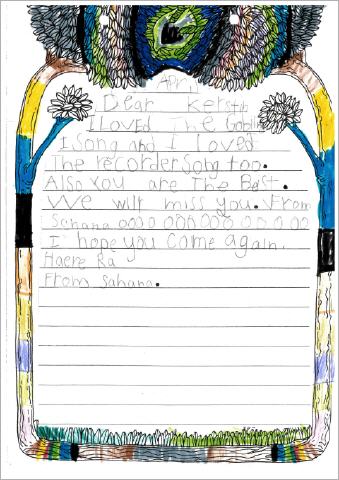 April
Dear Kerstin
I LOVED The Goblin
I Song and I Loved
The recorder song too.
Also you are The Best.
We will miss you. From
Sahana ooooooooooooo
I hope you come again.
Haere Ra
From Sahana.